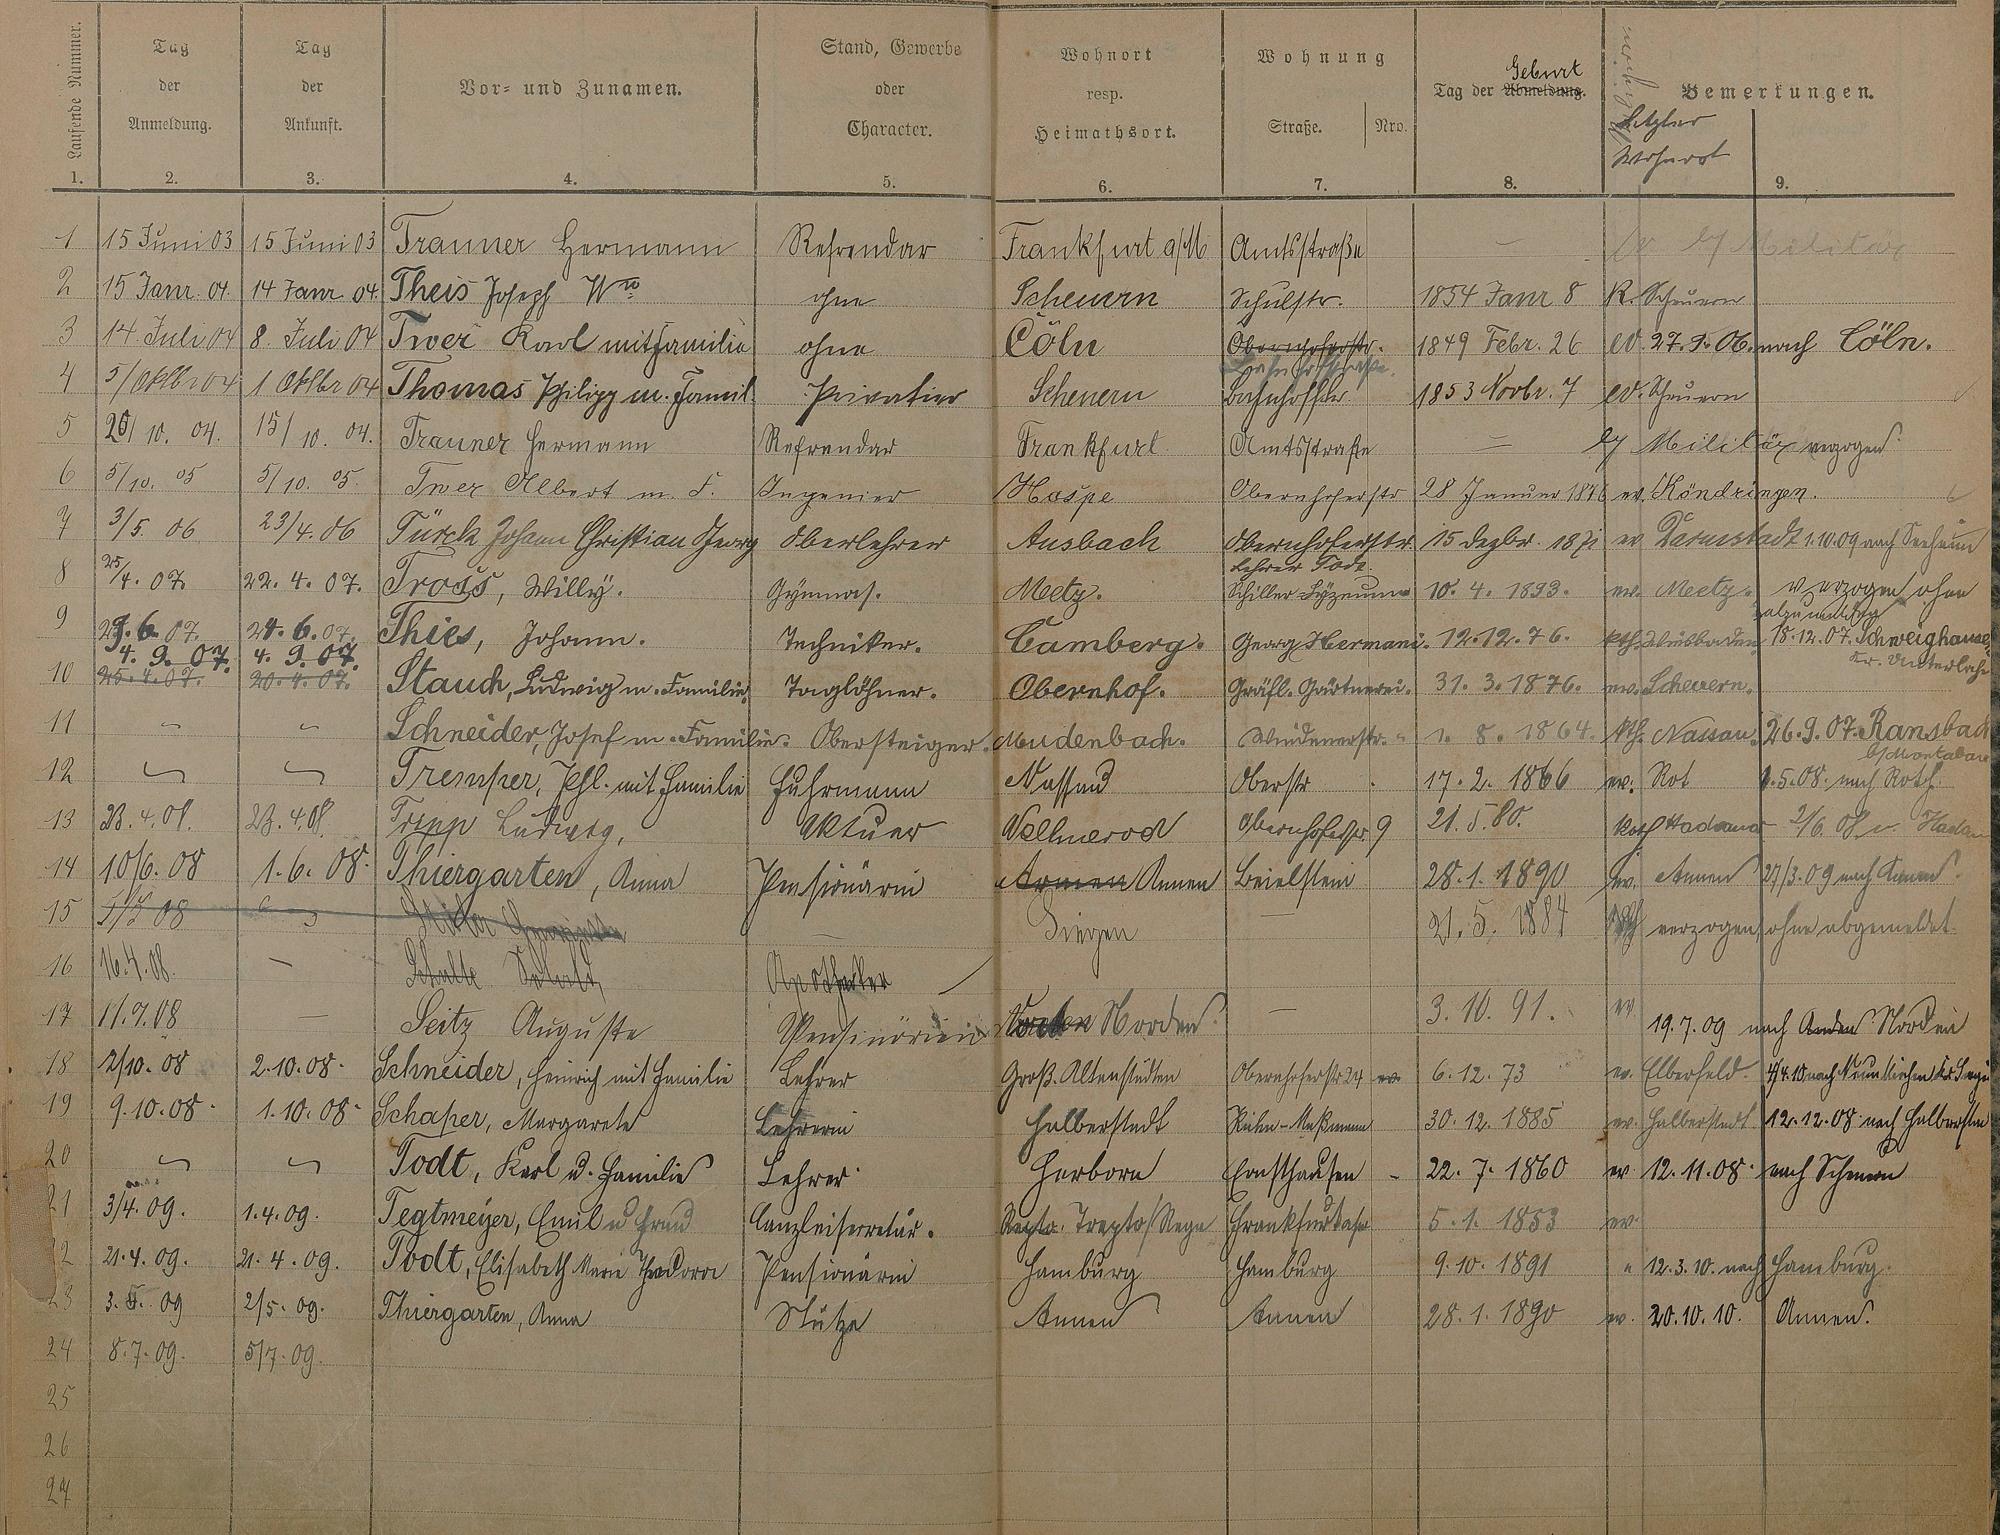 Laufende Nummer. Tag der Anmeldung. Tag der Ankunft. Vor- und Zunamen. Stand, Gewerbe oder Character. Wohnort resp. Heimathsort. Wohnung Straße. Nro. Tag der Abmeldung. Geburt Bemerkungen. Letzter Wohnort
1. 2. 3. 4. 5. 6. 7. 8. 9.
1 15 Juni 03 15 Juni 03 Trauner Hermann Refrendar Frankfurt a/M Amtsstraße — Militär
2 15 Janr. 04. 14 Janr. 04. Theis Joseph Wwe ohne Scheuern Schulstr. 1854 Janr 8 K. Scheuern
3 14 Juli 04 8. Juli 04 Twer Karl mit Familie ohne Cöln Obernhoferstr. Bahnhofstraße. 1849 Febr. 26 ev. 27.9.06. nach Cöln.
4 5/Oktbr 04 1 Oktbr 04 Thomas Philipp m. Famil. Privatier Scheuern Bahnhofstr. 1853 Novbr. 7 ev. Scheuern
5 20/10. 04. 15/10. 04. Trauner Hermann Refrendar Frankfurt Amtsstraße — Militär verzogen.
6 5/10. 05 5/10. 05. Twer Albert m. F. Ingenier Haspe Obernhoferstr 28 Januar 1876 ev. Köndringen.
7 3/5. 06 23/4. 06 Türck Johann Christian Georg Oberlehrer Ausbach Obernhoferstr. 15 Dezbr. 1871 ev Darmstadt 1.10.09 nach Seeheim
8 25/4. 07. 22. 4. 07. Tross, Willy. Gymnas. Metz. Lehrer Todt. Schiller Lyzeum 10. 4. 1893. ev. Metz. verzogen ohne abzumelden
9 29.6. 07. 24. 6. 07. Thies, Johann. Techniker. Camberg. Georg Hermani. 12.12.76. kth. Wiesbaden 18.12.07. Schweighausen, Kr. Unterlahn
10 4. 9. 07. 25.4.07. 4. 9. 07. 20.4.07. Stauch, Ludwig m. Familie. Taglöhner. Obernhof. Gräfl. Gärtnerei. 31. 3. 1876. ev. Scheuern.
11 " " Schneider, Josef m. Familie. Obersteiger. Mudenbach. Windenerstr. 1. 8. 1864. kth. Nassau. 26.9.07. Ransbach b/Montabaur
12 " " Tremper, Phl. mit Familie Fuhrmann Nassau Oberstr 17. 2. 1866 ev. Rot 1.5.08. nach Roth
13 23.4.08. 23.4.08. Tripp Ludwig, Aktuar Wallmerod Obernhoferstr 9 21.5.80. kath Hadamar 2/6. 08
14 10/6. 08 1. 6. 08. Thiergarten, Anna Pensionärin Armen Annen Beielstein 28. 1. 1890 ev. Annen 27/3. 09 nach Annen.
15 08 — Siegen — 21. 5. 1884 verzogen ohne abgemeldet.
16 16.4.08. — Schulte Apotheker
17 11.9.08 — Seitz Auguste Pensinörien Norden — 3. 10. 91. ev 19.7.09 nach Norden
18 2/10. 08 2.10.08. Schneider, Heinrich mit Familie Lehrer Groß. Altenstädten Obernhoferstr 24 ev. 6. 12. 73 ev. Elberfeld. 4.10 nach Neunkirchen
19 9.10.08. 1.10.08. Schaper, Margarete Lehrerin Halberstadt 30. 12. 1885 ev. Halberstadt 12.12.08 nach Halberstadt
20 " " Todt, Karl u. Familie Lehrer. Herborn Ernsthausen - 22. 7. 1860 ev 12.11.08. nach Scheuern
21 3/4. 09. 1.4.09. Tegtmeyer, Emil u Frau Canzleisecretär. Trepto/Rega 5. 1. 1853 ev.
22 21.4.09. 21. 4. 09. Todt, Elisabeth Marie Theodora Pensionärin Hamburg Hamburg 9.10. 1891 " 12.3.10. nach Hamburg.
23 3. 5. 09 2/5. 09. Thiergarten, Anna Stütze Annen Annen 28. 1. 1890 ev. 20.10.10. Annen.
24 8.7.09. 5/7.09.
25
26
27